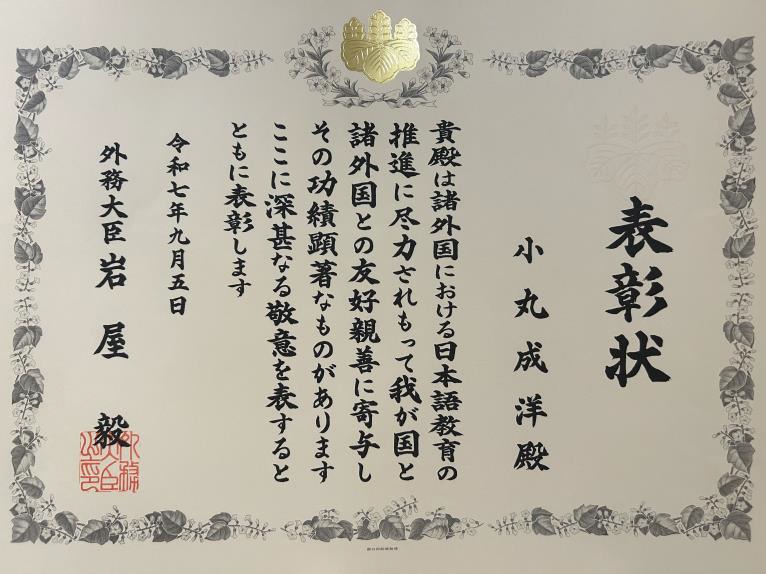 表彰状
小丸成洋殿
貴殿は諸外国における日本語教育の
推進に尽力されもって我が国と
諸外国との友好親善に寄与し
その功績顕著なものがあります
ここに深甚なる敬意を表すると
ともに表彰します
令和七年九月五日
外務大臣岩屋毅